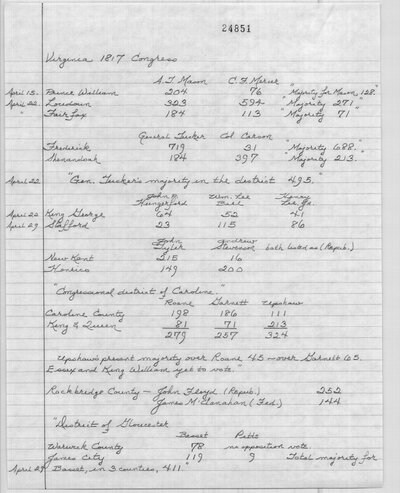 24851
Virginia 1817 Congress
A.T. Mason C.F. Mercer
April 15. Prince William 204 76 "Majority for Mason, 128."
April 22. Loudoun 323 594 "Majority 271"
" Fairfax 184 113 "Majority 71"
General Tucker Col Carson
Frederick 719 31 "Majority 688."
Shenandoah 184 397 "Majority 213."
April 22 "Gen. Tucker's majority in the district 495."
John P. Hungerford Wm. Lee Ball Henry Lee Jr.
April 20 King George 64 52 41
April 29 Stafford 23 115 86
John Tyler Andrew Stevenson both listed as (Repub.)
New Kent 215 16
Henrico 149 200
"Congressional district of Caroline."
Roane Garnett Upshaw
Caroline County 198 186 111
King & Queen 81 71 213
279 257 324
"Upshaw's present majority over Roane 45 - over Garnett 65.
Essex and King William yet to vote."
Rockbridge County - John Floyd (Repub.) 252
James McClanahan (Fed.) 144
"District of Gloucester
Basset Petts
Warwick County 78 no opposition vote
James City 119 9 "Total majority for
April 29 Basset, in 3 counties, 411"